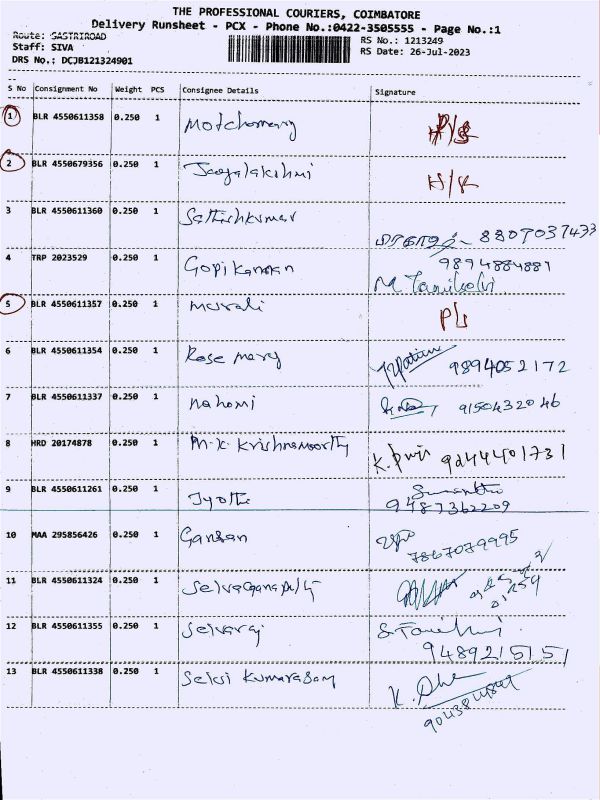 THE PROFESSIONAL COURIERS, COIMBATORE
Delivery Runsheet - PCX - Phone No.:0422-3505555 - Page No.:1
Route: SASTRIROAD
RS No.: 1213249
Staff: SIVA
RS Date: 26-Jul-2023
DRS No.: DCJB121324901
S No Consignment No Weight PCS Consignee Details Signature
1 BLR 4550611358 0.250 1
2 BLR 4550679356 0.250 1 Jayalakshmi H/K
3 BLR 4550611360 0.250 1 Sathishkumar 8807037433
4 TRP 2023529 0.250 1 Gopi Kannan 9894884881
M Tamilselvi
5 BLR 4550611357 0.250 1 Murali
6 BLR 4550611354 0.250 1 Rose mary 9894052172
7 BLR 4550611337 0.250 1 nahomi 9150432046
8 HRD 20174878 0.250 1 M.K. Krishnamoorthy 9244401731
9 BLR 4550611261 0.250 1 Jyothi
9487362209
10 MAA 295856426 0.250 1 Ganesan
7867079995
11 BLR 4550611324 0.250 1 Selvaganapathy
12 BLR 4550611355 0.250 1 Selvaraj
9489215151
13 BLR 4550611338 0.250 1 Selvi Kumaragam